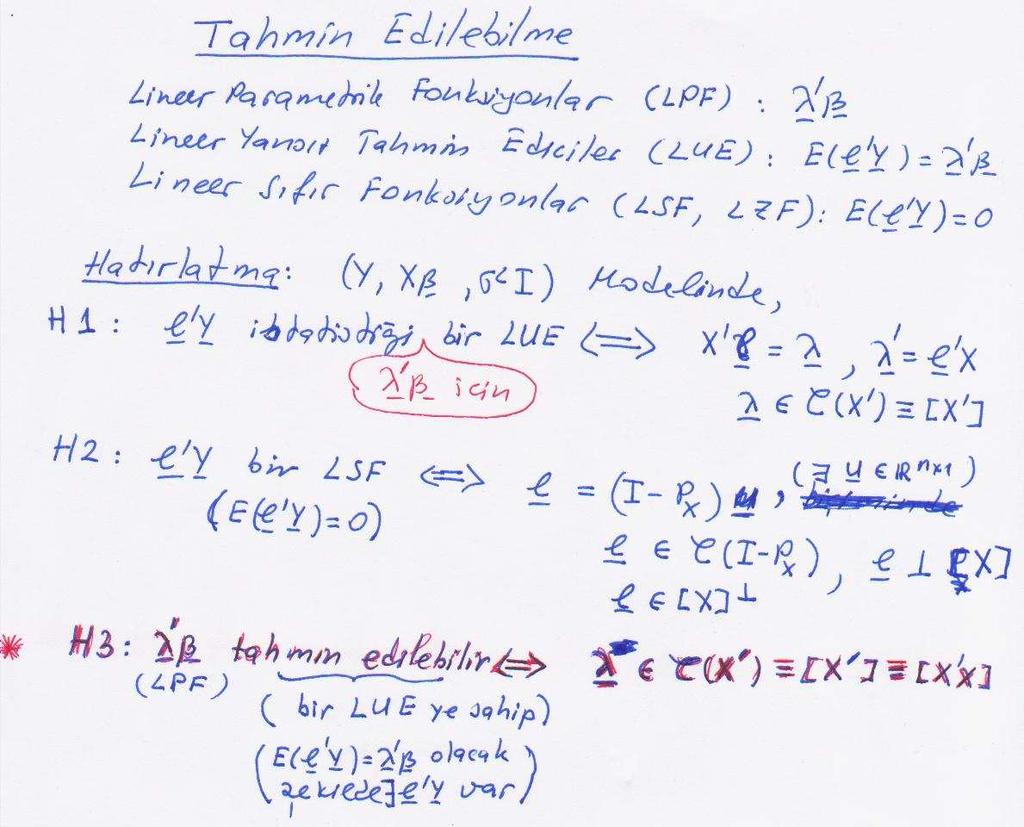 Tahmin Edilebilme
Lineer Parametrik Fonksiyonlar (LPF) : λ'β
Lineer Yansız Tahmin Ediciler (LUE) : E(ℓ'Y) = λ'β
Lineer Sıfır Fonksiyonlar (LSF, LZF) : E(ℓ'Y) = 0
Hatırlatma: (Y, Xβ, σ²I) Modelinde,
H1 : ℓ'Y istatistiği bir LUE ⟺ X'ℓ = λ , λ' = ℓ'X
λ'β için
λ ∈ C(X') ≡ [X']
H2 : ℓ'Y bir LSF ⟺ ℓ = (I - P_X) u , (∃ u ∈ ℝ^{n×1})
(E(ℓ'Y) = 0)
ℓ ∈ C(I - P_X) , ℓ ⊥ [X]
ℓ ∈ [X]^⊥
* H3 : λ'β tahmin edilebilir ⟺ λ ∈ C(X') ≡ [X'] ≡ [X'X]
(LPF)
(bir LUE ye sahip)
(E(ℓ'Y) = λ'β olacak
şekilde ∃ ℓ'Y var)